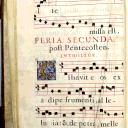 missa est.
FERIA SECUNDA
post Pentecosten.
INTROITUS.
Ibavit eos ex
a dipe frumenti al le-
lu ia: & de petra melle